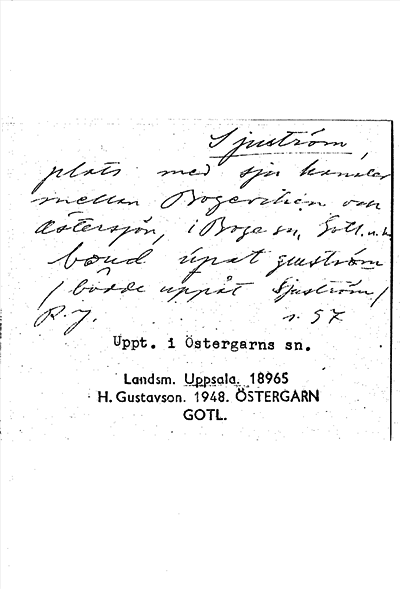 Sjuström,
plats med sju kanaler
mellan Bogeviken och
Östersjön, i Boge sn, Gotl. n. h.
bænd úpat
/ både uppåt Sjuström /
R. J. s. 57
Uppt. i Östergarns sn.
Landsm. Uppsala. 18965
H. Gustavson. 1948. ÖSTERGARN
GOTL.